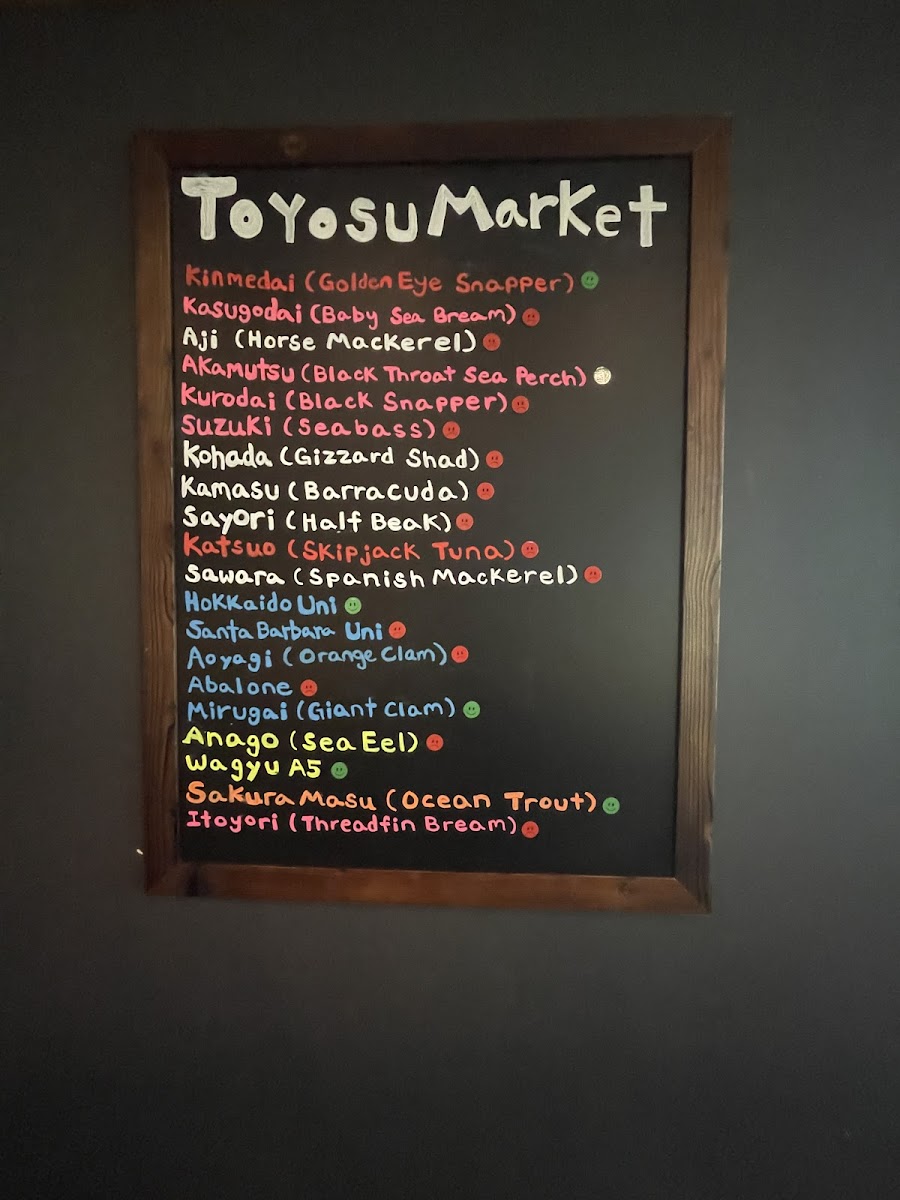 Toyosu Market
Kinmedai (Golden Eye Snapper)
Kasugodai (Baby Sea Bream)
Aji (Horse Mackerel)
Akamutsu (Black Throat Sea Perch)
Kurodai (Black Snapper)
Suzuki (Seabass)
Kohada (Gizzard Shad)
Kamasu (Barracuda)
Sayori (Half Beak)
Katsuo (Skipjack Tuna)
Sawara (Spanish Mackerel)
Hokkaido Uni
Santa Barbara Uni
Aoyagi (Orange Clam)
Abalone
Mirugai (Giant Clam)
Anago (Sea Eel)
Wagyu A5
Sakura Masu (Ocean Trout)
Itoyori (Threadfin Bream)